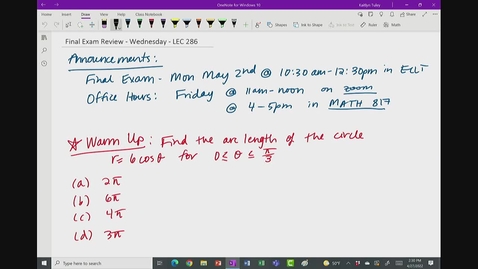 OneNote for Windows 10
Kaitlyn Tuley
Home Insert Draw View Help Class Notebook
Final Exam Review - Wednesday - LEC 286
Announcements:
Final Exam - Mon May 2nd @ 10:30am-12:30pm in ECLT
Office Hours: Friday @ 11am-noon on zoom
@ 4-5pm in MATH 817
☆ Warm Up: Find the arc length of the circle
r = 6cosθ for 0 ≤ θ ≤ π/3
(a) 2π
(b) 6π
(c) 4π
(d) 3π
Type here to search
50°F
4/27/2022